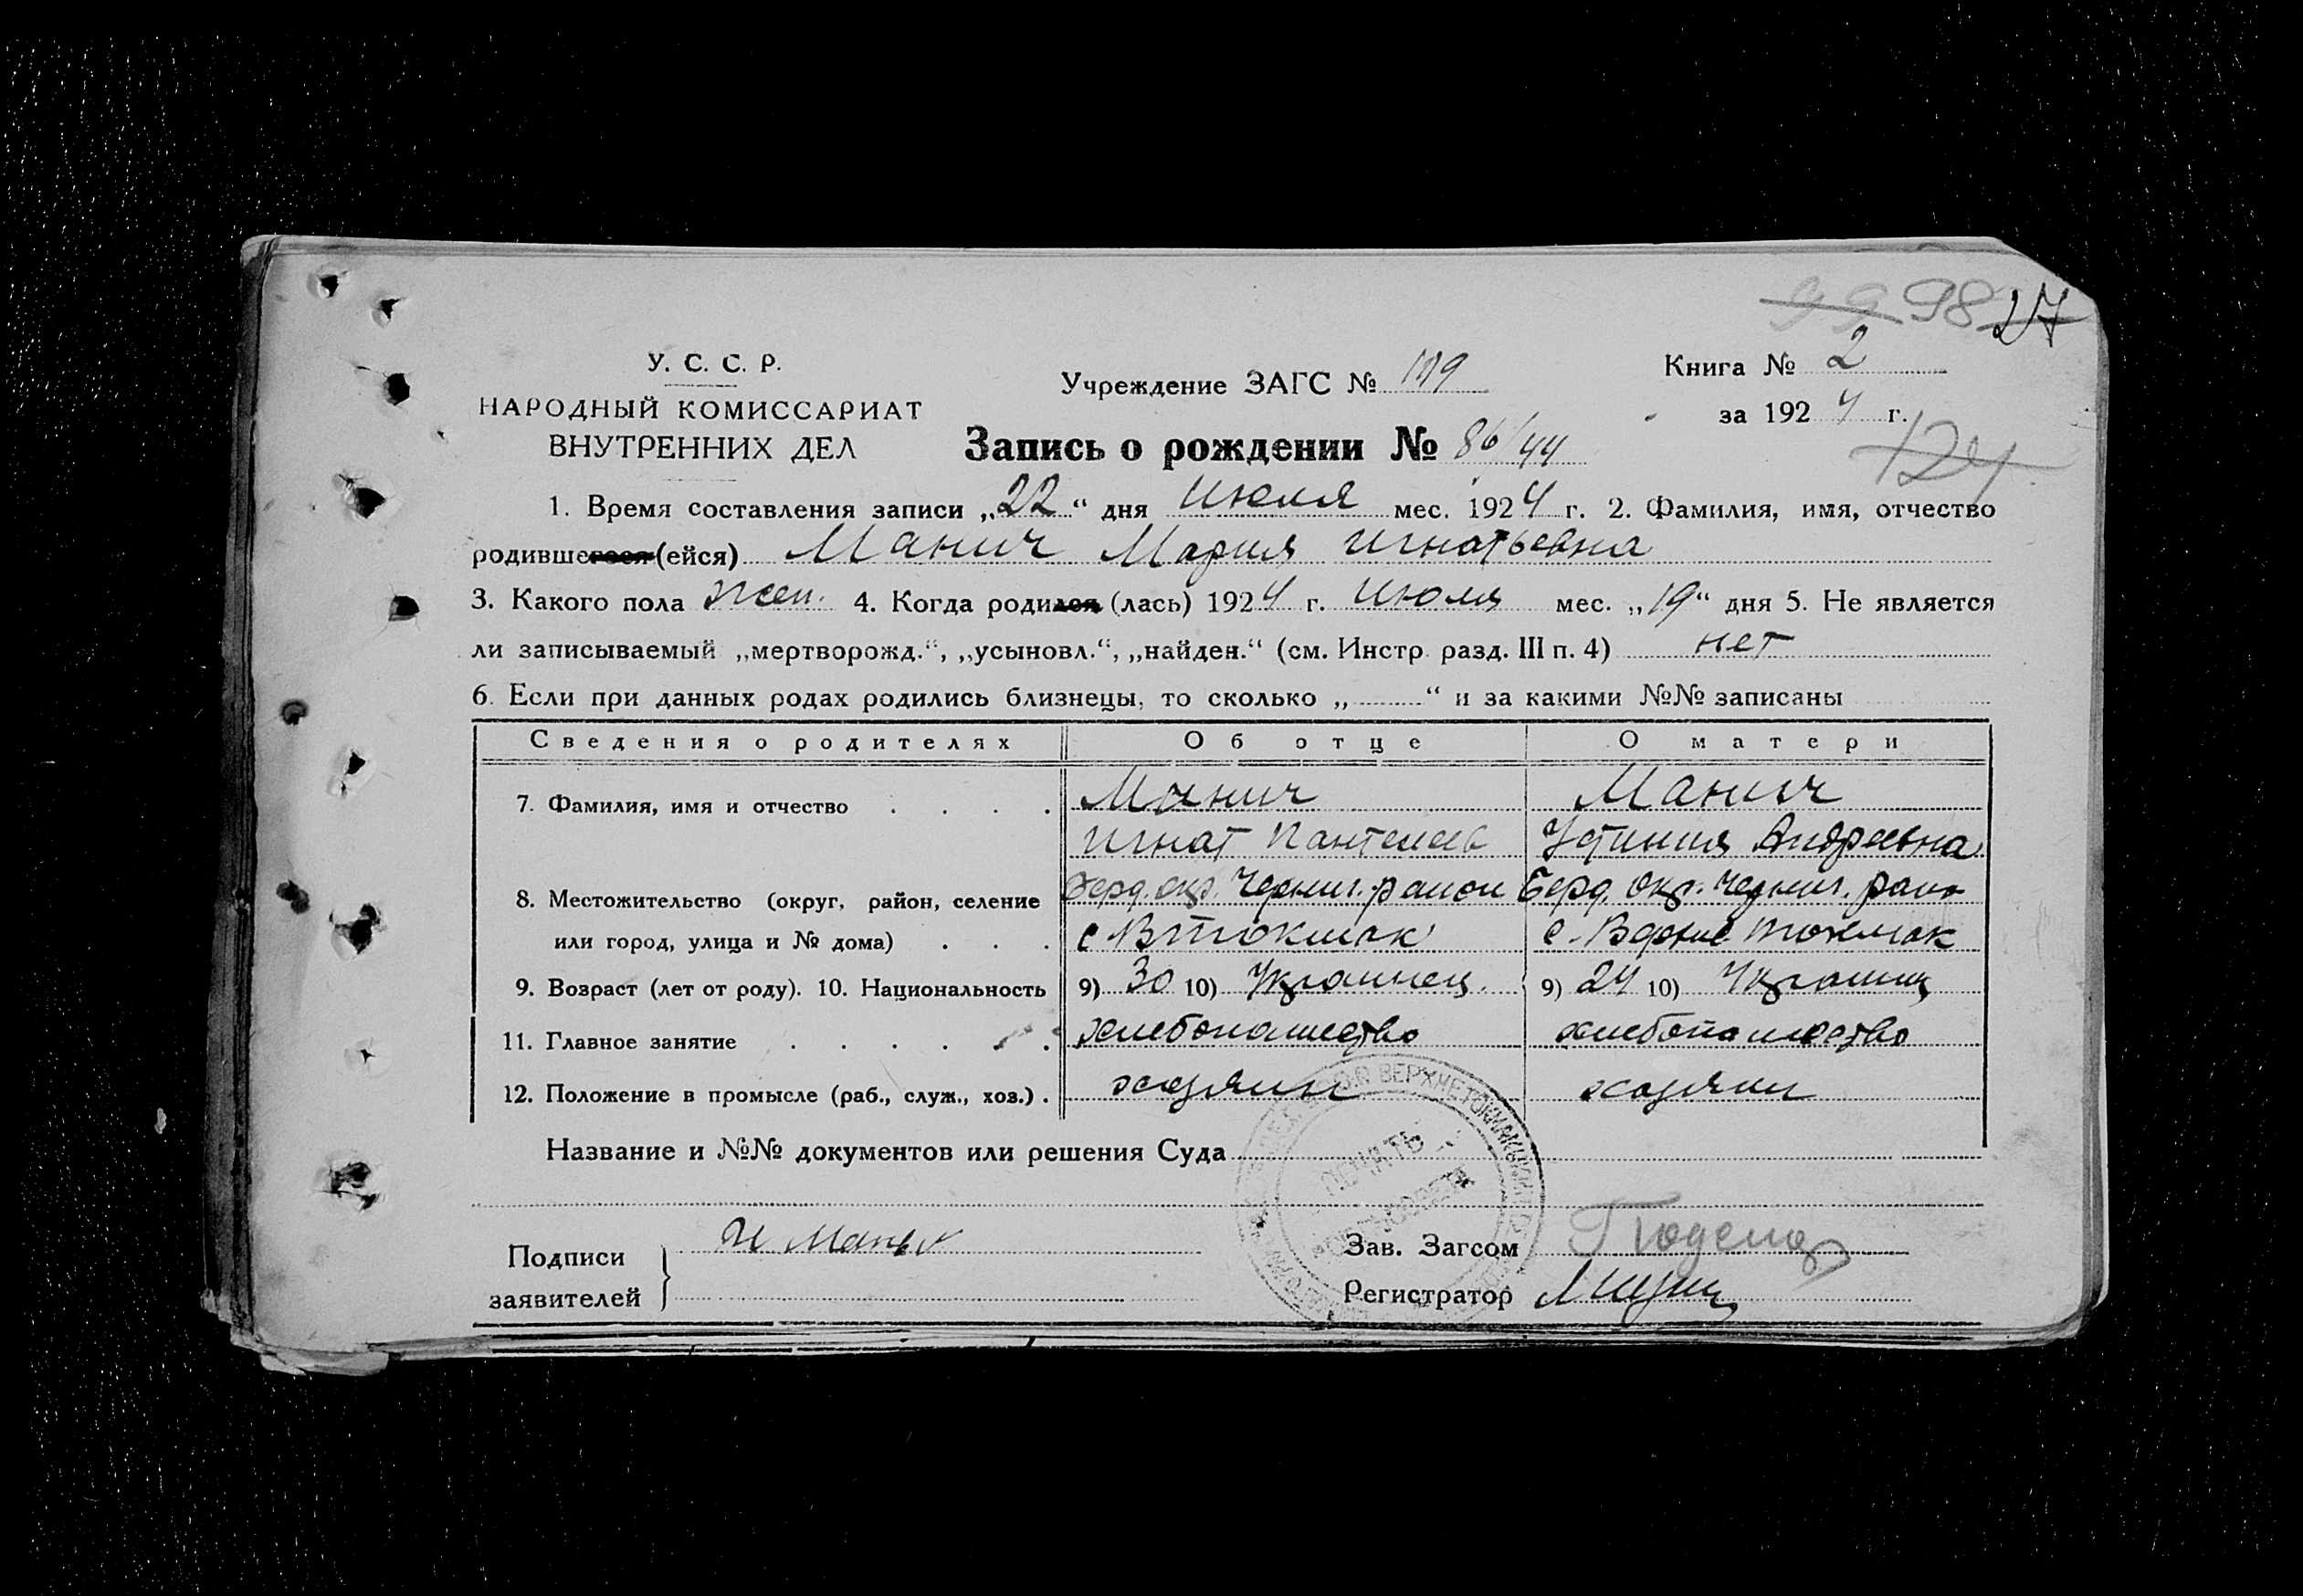 99 98 27
У. С. С. Р.
НАРОДНЫЙ КОМИССАРИАТ
ВНУТРЕННИХ ДЕЛ
Учреждение ЗАГС №
Книга № 2
за 1924 г.
124
Запись о рождении № 86/44
1. Время составления записи „22“ дня Июля мес. 1924 г. 2. Фамилия, имя, отчество
родившегося (ейся) Манич Мария Игнатьевна
3. Какого пола жен. 4. Когда родился (лась) 1924 г. Июля мес. „19“ дня 5. Не является
ли записываемый „мертворожд.“, „усыновл.“, „найден.“ (см. Инстр. разд. III п. 4) нет
6. Если при данных родах родились близнецы, то сколько „ “ и за какими №№ записаны
Сведения о родителях Об отце О матери
7. Фамилия, имя и отчество . . . . Манич Манич
Игнат Пантелеев Устиния Андреевна
8. Местожительство (округ, район, селение Берд. окр. Черниг. район Берд. Окр. Черниг. район
или город, улица и № дома) . . . с Втокмак с. Верхне Токмак
9. Возраст (лет от роду). 10. Национальность 9) 30 10) Украинец. 9) 24 10)
11. Главное занятие . . . . . . хлебопашество хлебопашество
12. Положение в промысле (раб., служ., хоз.) . хозяин хозяин
Название и №№ документов или решения Суда
ВЕРХНЕТОКМАКСКИЙ
ПЕЧАТЬ
Подписи
заявителей
И Манич
Зав. Загсом
Регистратор